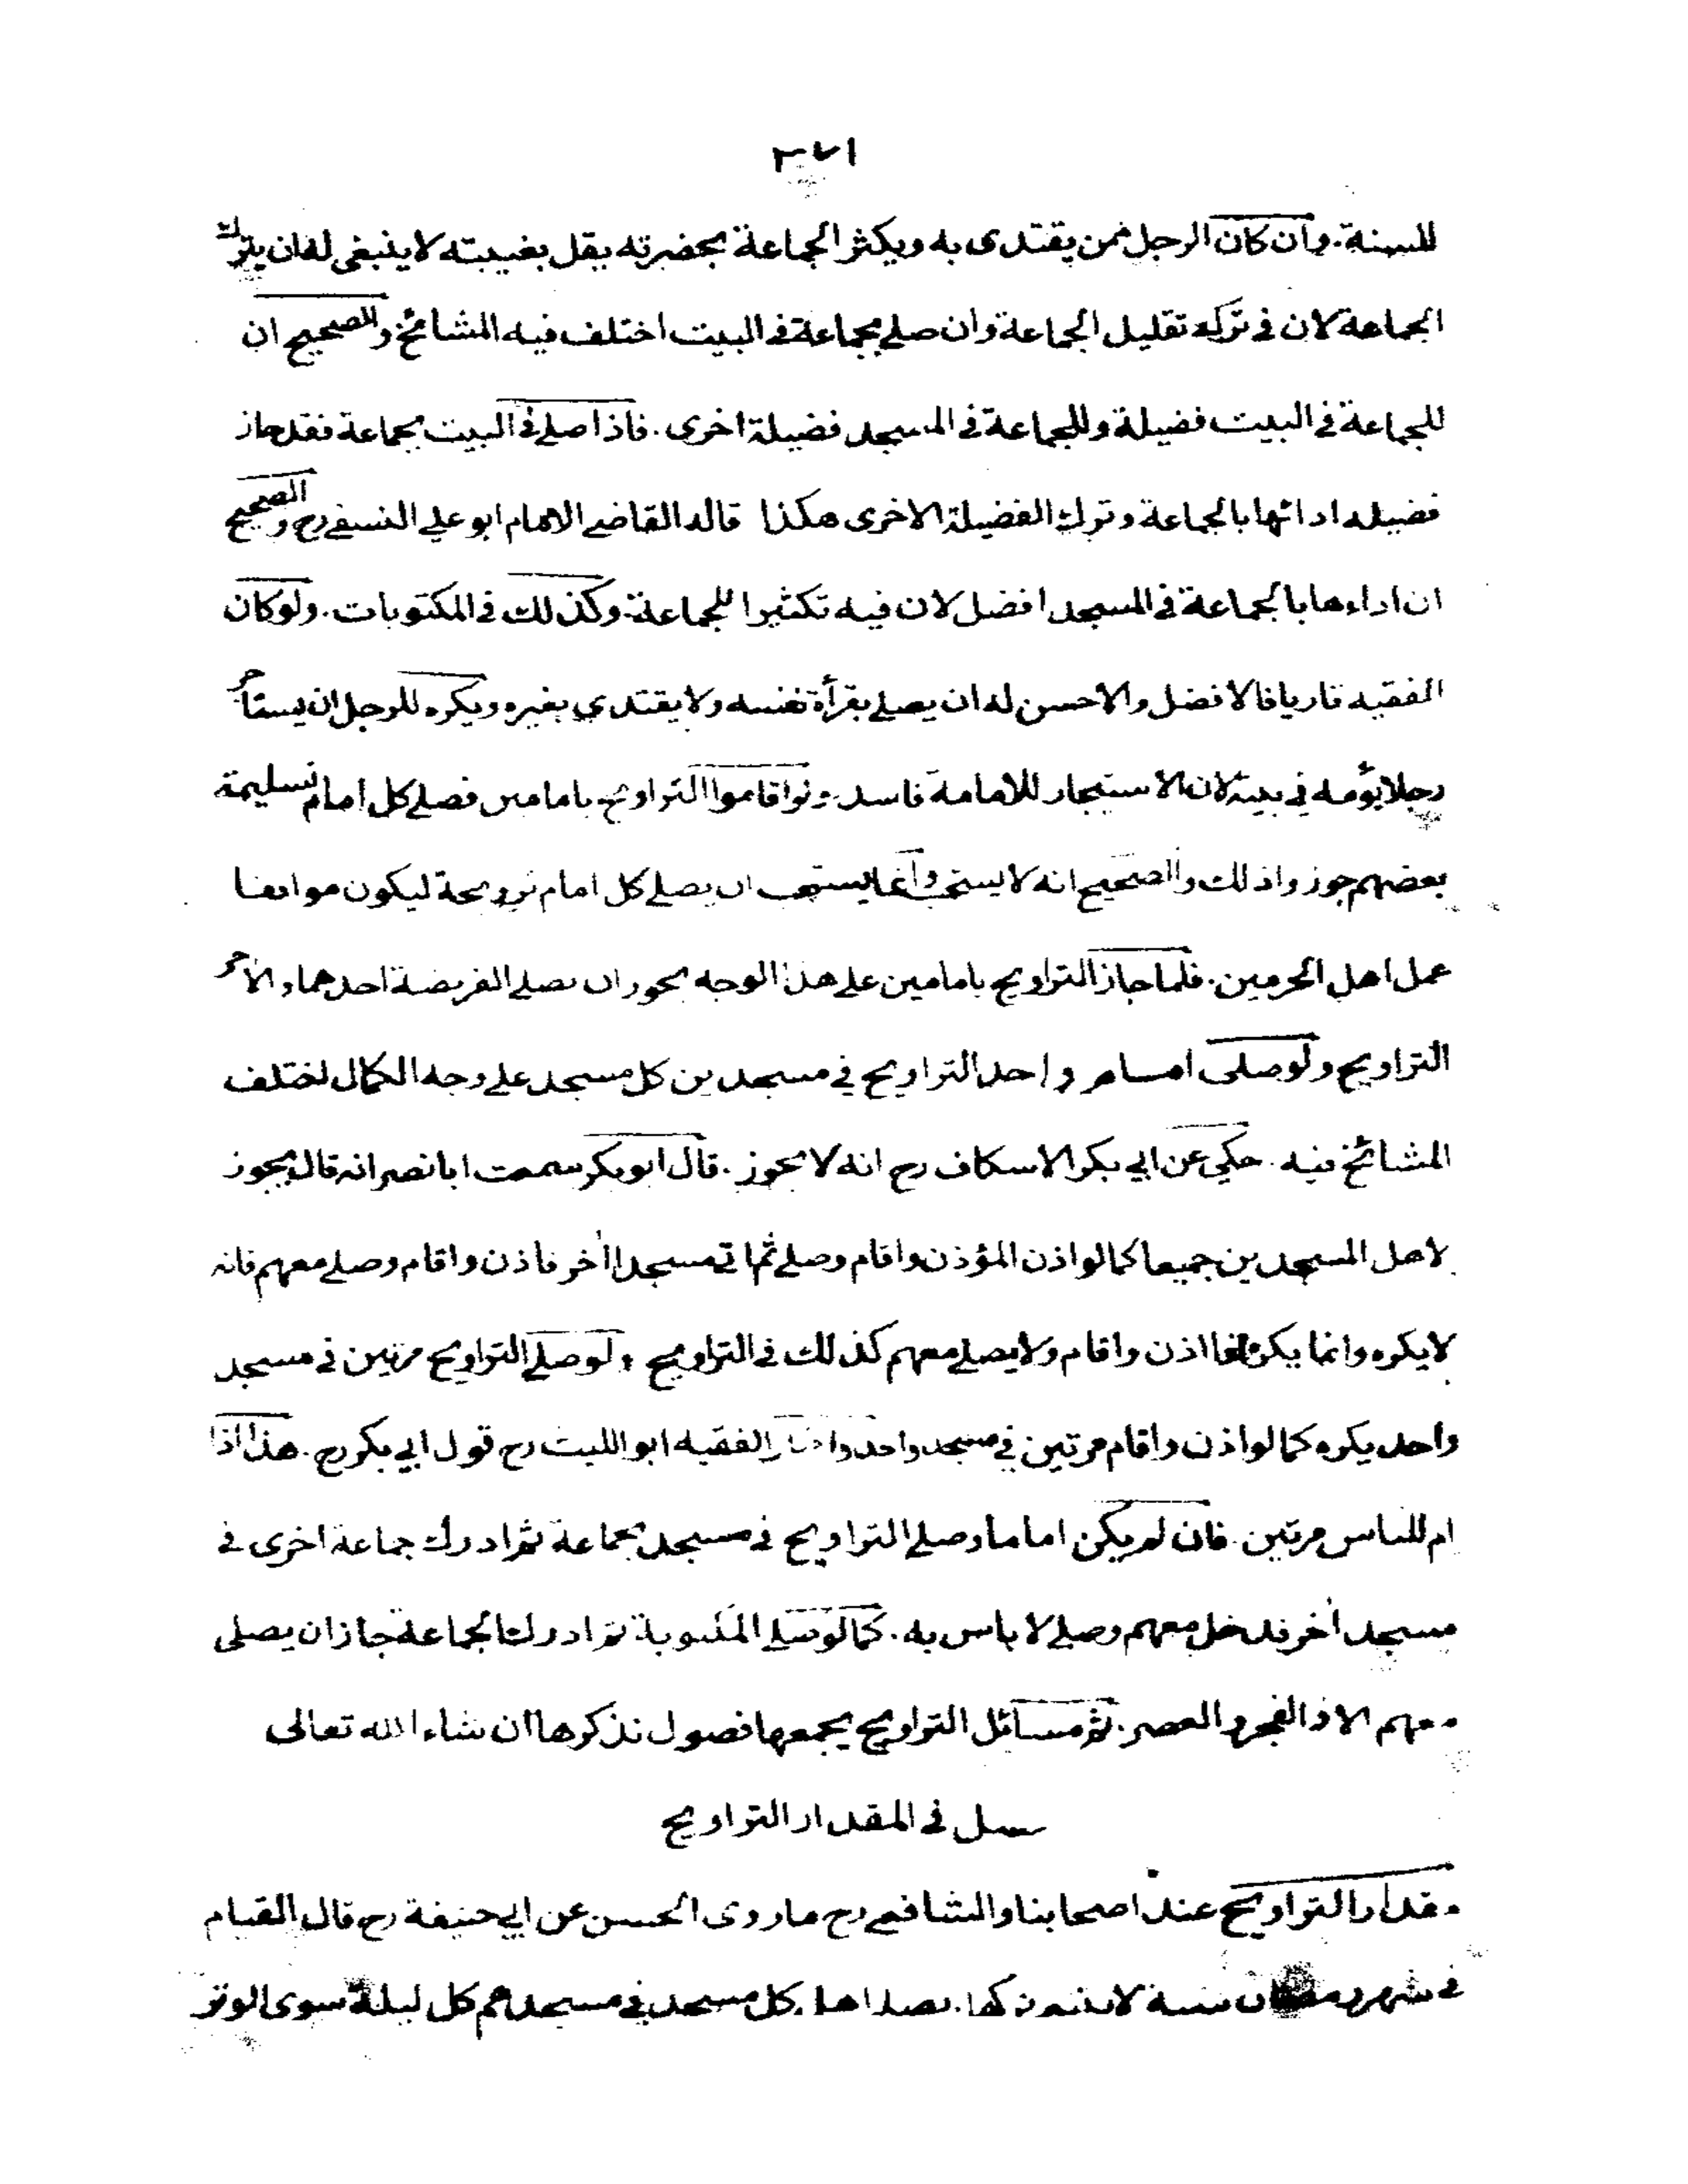 ٣٧١
للسنة. وان كان الرجل ممن يقتدى به ويكثر الجماعة بحضرته يقل بغيبته لا ينبغى له ان يترك
الجماعة لان فى تركه تقليل الجماعة وان صلى بجماعة فى البيت اختلف فيه المشائخ والصحيح ان
للجماعة فى البيت فضيلة وللجماعة فى المسجد فضيلة اخرى. فاذا صلى فى البيت بجماعة فقد حاز
فضيلة ادائها بالجماعة وترك الفضيلة الاخرى هكذا قاله القاضى الامام ابو على النسفى رح والصحيح
ان اداءها بالجماعة فى المسجد افضل لان فيه تكثيرا للجماعة. وكذلك فى المكتوبات. ولو كان
الفقيه قاريا فالافضل والاحسن له ان يصلى بقرأة نفسه ولا يقتدي بغيره ويكره للرجل ان يستأجر
رجلا يؤمه في بيته لان الاستيجار للامامة فاسد ولو اقاموا التراويح بامامين فصلى كل امام تسليمة
بعضهم جوزوا ذلك والصحيح انه لا يستحب وانما يستحب ان يصلى كل امام ترويحة ليكون موافقا
عمل اهل الحرمين. فلما جاز التراويح بامامين على هذا الوجه يجوز ان يصلى الفريضة احدهما والآخر
التراويح ولو صلى امام واحد التراويح في مسجدين كل مسجد على وجه الكمال اختلف
المشائخ فيه. حكي عن ابي بكر الاسكاف رح انه لا يجوز. قال ابو بكر سمعت ابا نصر انه قال يجوز
لاهل المسجدين جميعا كما لو اذن المؤذن واقام وصلى ثم اتى مسجدا أخر فاذن واقام وصلى معهم فانه
لا يكره وانما يكره اذا اذن واقام ولا يصلى معهم كذلك فى التراويح ولو صلى التراويح مرتين فى مسجد
واحد يكره كما لو اذن واقام مرتين في مسجد واحد واختار الفقيه ابو الليث رح قول ابي بكر رح. هذا اذا
ام للناس مرتين. فان لم يكن اماما وصلى التراويح فى مسجد بجماعة ثم ادرك جماعة اخرى فى
مسجد أخر فدخل معهم وصلى لا باس به. كما لو صلى المكتوبة ثم ادرك الجماعة جاز ان يصلى
معهم الا فى الفجر والعصر. ثم مسائل التراويح يجمعها فصول نذكرها ان شاء الله تعالى
فصل فى المقدار التراويح
مقدار التراويح عند اصحابنا والشافعى رح ما روى الحسن عن ابي حنيفة رح قال القيام
فى شهر رمضان سنة لا ينبغى تركها. يصلى اهل كل مسجد في مسجدهم كل ليلة سوى الوتر